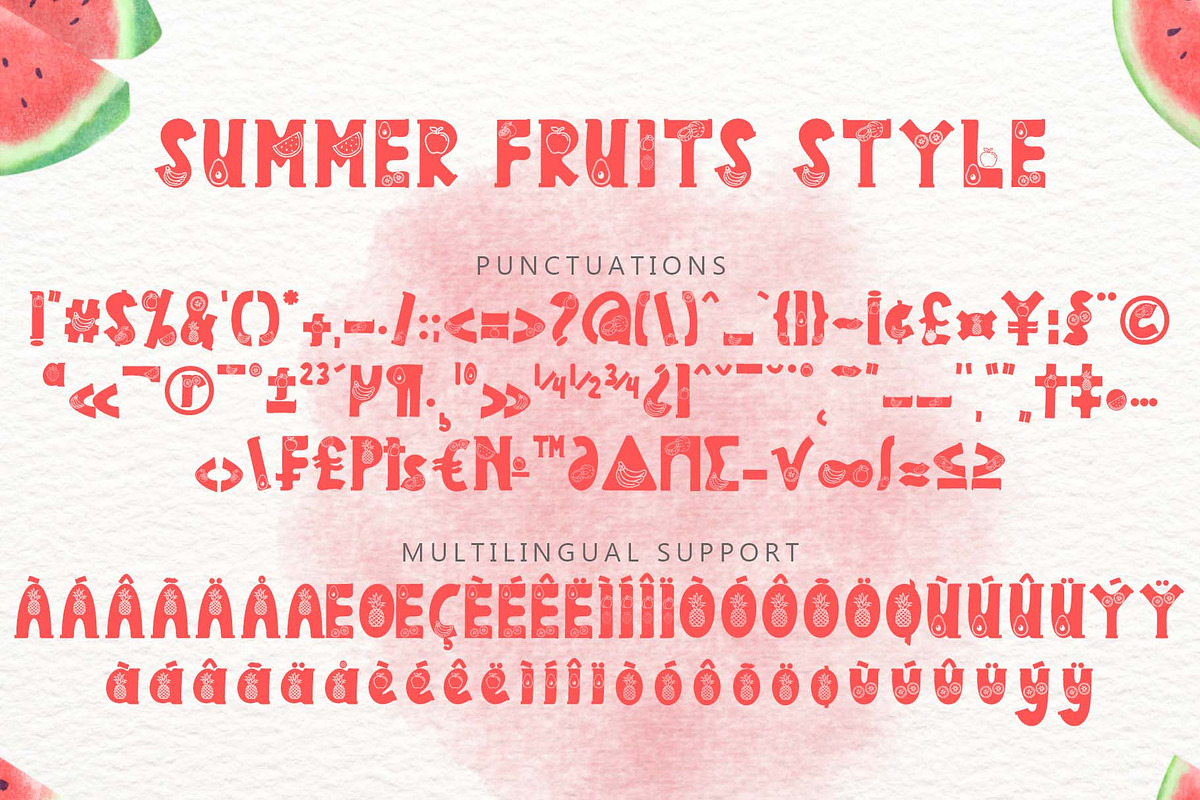 SUMMER FRUITS STYLE
PUNCTUATIONS
!"#$%&'()*+,-./:;<=>?@[\]^_`{|}~¡¢£¤¥¦§¨©
ª«¬®¯°±²³´µ¶·¸¹º»¼½¾¿
‹›⁄₣₤₧€№™∂∆∏∑−√∞∫≈≤≥
MULTILINGUAL SUPPORT
ÀÁÂÃÄÅÆŒÇÈÉÊËÌÍÎÏÒÓÔÕÖØÙÚÛÜÝŸ
àáâãäåèéêëìíîïòóôõöøùúûüýÿ